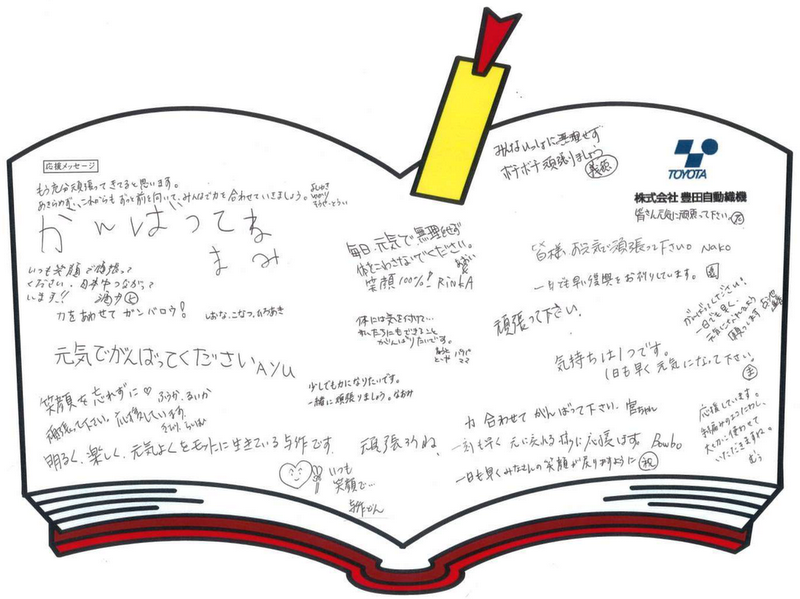 応援メッセージ
もう充分頑張ってきてると思います。
あきらめず、これからもずっと前を向いて、みんなで力を合わせていきましょう。
がんばってね
まみ
いつも笑顔で頑張って
ください。日本中つながって
います!!
力をあわせて ガンバロウ! しおな、こなつ、ひろあき
元気でがんばってくださいAYU
笑顔を忘れずに♡ ふうか、るいか
頑張ってください。応援しています。
明るく、楽しく、元気よくをモットーに生きている与作です。
いつも
笑顔で…
与作
毎日、元気で無理せず
体をこわさないでください。
笑顔100%! RinKA
体には気を付けて…
わたしたちにもできること
がんばりたいです。
パパ
ママ
少しでも力になりたいです。
一緒に頑張りましょう。なおみ
頑張ろうね。
みんないっしょに無理せず
ボチボチ頑張りましょう
TOYOTA
株式会社 豊田自動織機
皆さん元気に頑張って下さい。
皆様、お元気で頑張って下さい。NAKO
一日でも早い復興をお祈りしています。
頑張って下さい。
がんばってください!
一日でも早く、
元気になれるよう
願っています
気持ちは1つです。
1日も早く元気になって下さい
力合わせてがんばって下さい。宮ちゃん
一刻も早く元に戻れる様に応援します。
一日も早くみなさんの笑顔が戻りますように 祝
応援しています。
大切に使わせて
いただきますね。